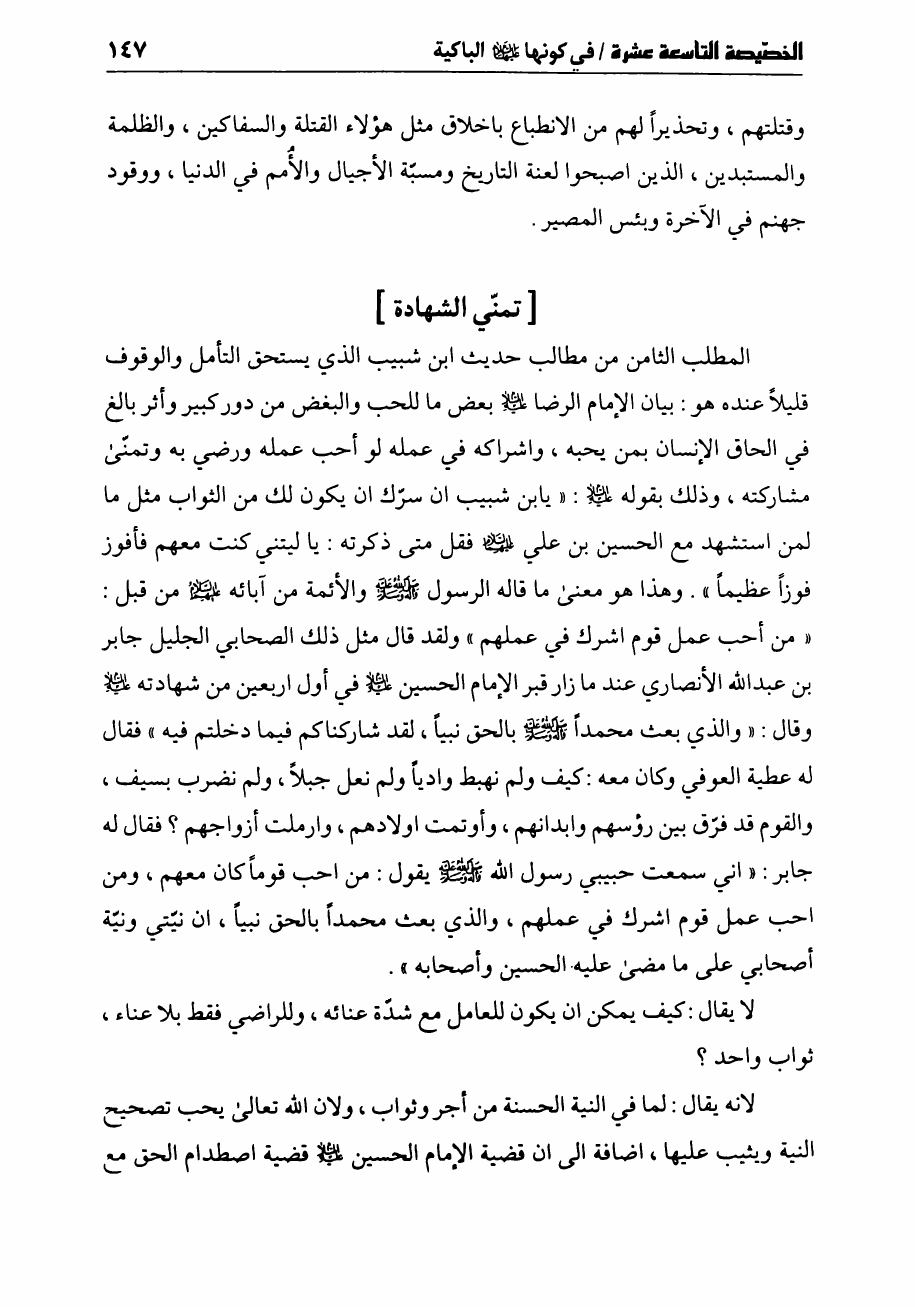 الخصّيصة التاسعة عشرة / في كونها عليها السلام الباكية ١٤٧
وقتلتهم ، وتحذيراً لهم من الانطباع باخلاق مثل هؤلاء القتلة والسفاكين ، والظلمة
والمستبدين ، الذين اصبحوا لعنة التاريخ ومسبّة الأجيال والأُمم في الدنيا ، ووقود
جهنم في الآخرة وبئس المصير .
[ تمنّي الشهادة ]
المطلب الثامن من مطالب حديث ابن شبيب الذي يستحق التأمل والوقوف
قليلاً عنده هو : بيان الإمام الرضا عليه السلام بعض ما للحب والبغض من دور كبير وأثر بالغ
في الحاق الإنسان بمن يحبه ، واشراكه في عمله لو أحب عمله ورضي به وتمنّىٰ
مشاركته ، وذلك بقوله عليه السلام : « يابن شبيب ان سرّك ان يكون لك من الثواب مثل ما
لمن استشهد مع الحسين بن علي عليهما السلام فقل متى ذكرته : يا ليتني كنت معهم فأفوز
فوزاً عظيماً » . وهذا هو معنىٰ ما قاله الرسول صلى الله عليه وآله وسلم والأئمة من آبائه عليهم السلام من قبل :
« من أحب عمل قوم اشرك في عملهم » ولقد قال مثل ذلك الصحابي الجليل جابر
بن عبدالله الأنصاري عند ما زار قبر الإمام الحسين عليه السلام في أول اربعين من شهادته عليه السلام
وقال : « والذي بعث محمداً صلى الله عليه وآله وسلم بالحق نبياً ، لقد شاركناكم فيما دخلتم فيه » فقال
له عطية العوفي وكان معه : كيف ولم نهبط وادياً ولم نعل جبلاً ، ولم نضرب بسيف ،
والقوم قد فرّق بين رؤسهم وابدانهم ، وأوتمت اولادهم ، وارملت أزواجهم ؟ فقال له
جابر : « اني سمعت حبيبي رسول الله صلى الله عليه وآله وسلم يقول : من احب قوماً كان معهم ، ومن
احب عمل قوم اشرك في عملهم ، والذي بعث محمداً بالحق نبياً ، ان نيّتي ونيّة
أصحابي على ما مضىٰ عليه الحسين وأصحابه » .
لا يقال : كيف يمكن ان يكون للعامل مع شدّة عنائه ، وللراضي فقط بلا عناء ،
ثواب واحد ؟
لانه يقال : لما في النية الحسنة من أجر وثواب ، ولان الله تعالىٰ يحب تصحيح
النية ويثيب عليها ، اضافة الى ان قضية الإمام الحسين عليه السلام قضية اصطدام الحق مع